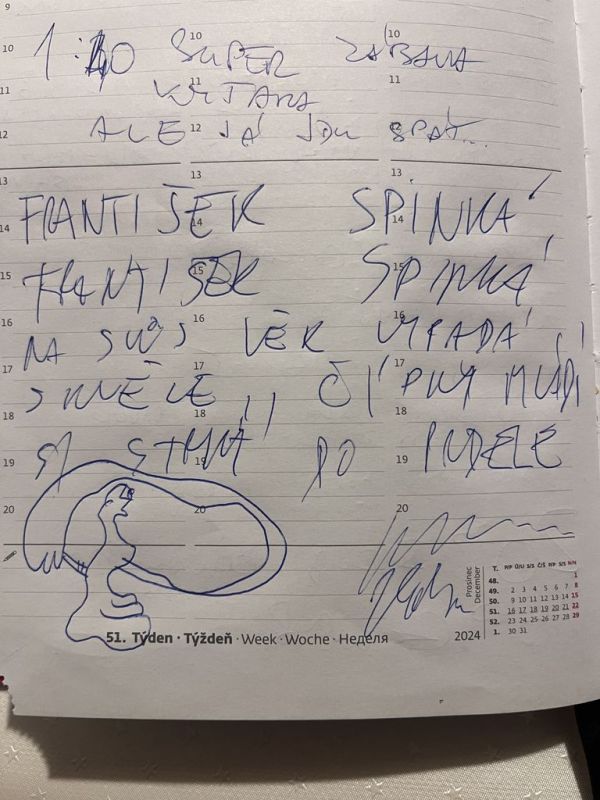 9
10 10 10
1:40 SUPER ZÁBAVA
11 11 11
12 12 12
ALE JÁ JDU SPÁT...
13 13 13
14 14 14
FRANTIŠEK SPINKÁ
15 15 15
FRANTIŠEK SPINKÁ
16 16 16
NA SVŮJ VĚK VYPADÁ
17 17 17
SKVĚLE,, ČÍPKY MLÁDÍ
18 18 18
SI STRKÁ DO PRDELE
19 19 19
20 20 20
Prosinec
December
T. PP Ú/U S/S Č/Š PP S/S N/N
48. 1
49. 2 3 4 5 6 7 8
50. 9 10 11 12 13 14 15
51. 16 17 18 19 20 21 22
52. 23 24 25 26 27 28 29
1. 30 31
51. Týden · Týždeň · Week · Woche · Неделя 2024